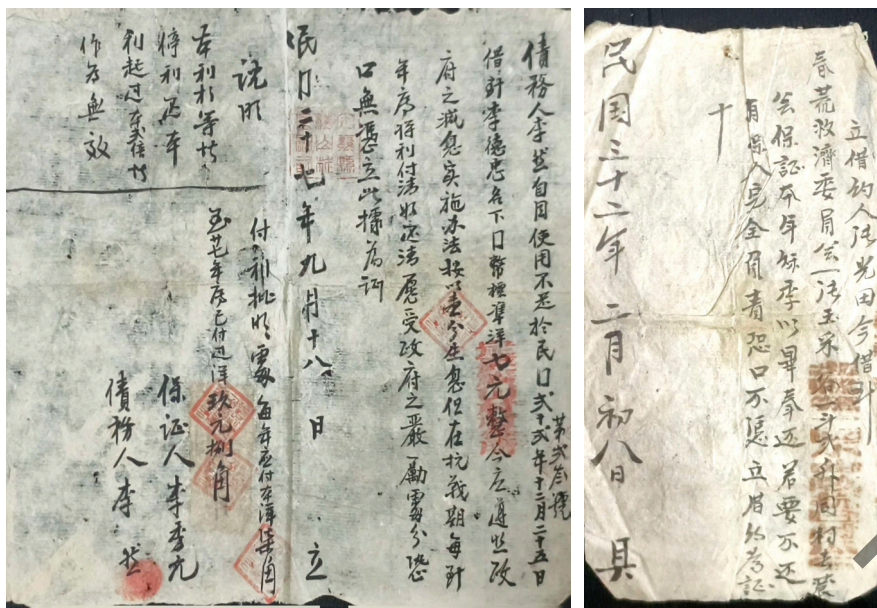 債務人李然自因使用不足於民囗弍拾弍年十二月二十五日
第弍叁號
借到李德忠名下囗幣標準洋七元整今应遵照政
府之减息实施办法按以壹分生息但在抗戰期每到
年底将利付清如不清愿受政府之嚴勵處分恐
口無憑立此據為証
民囗二十七年九月十八日 立
付利批明處每年应付本洋柒角
至廿七年底已付过洋玖元捌角
保証人李秀元
債務人李然
說明
本利於等時
停利还本
利起过本弍倍時
作為無效
立借約人張光田今借到
春荒救濟委員会張玉采谷一斗弍升同村长
会保証本年秋季以畢奉还若要不还
有保人完全負責恐口不憑立借約為証
十
民国三十二年二月初八日 具